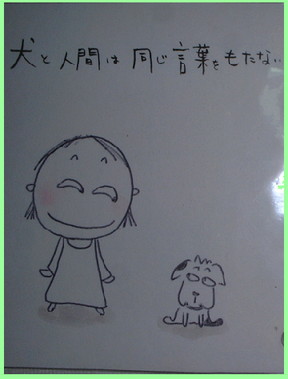 犬と人間は同じ言葉をもたない